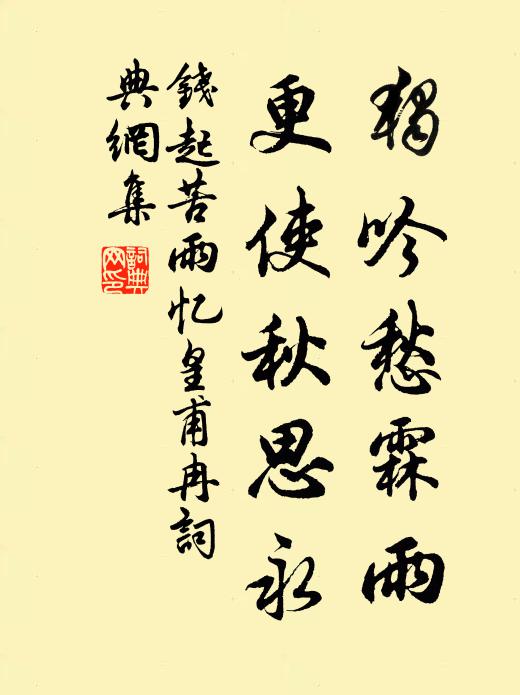 獨吟愁霖雨
更使秋思永
錢起苦雨忆皇甫冉詞
典網集
詞典
网印